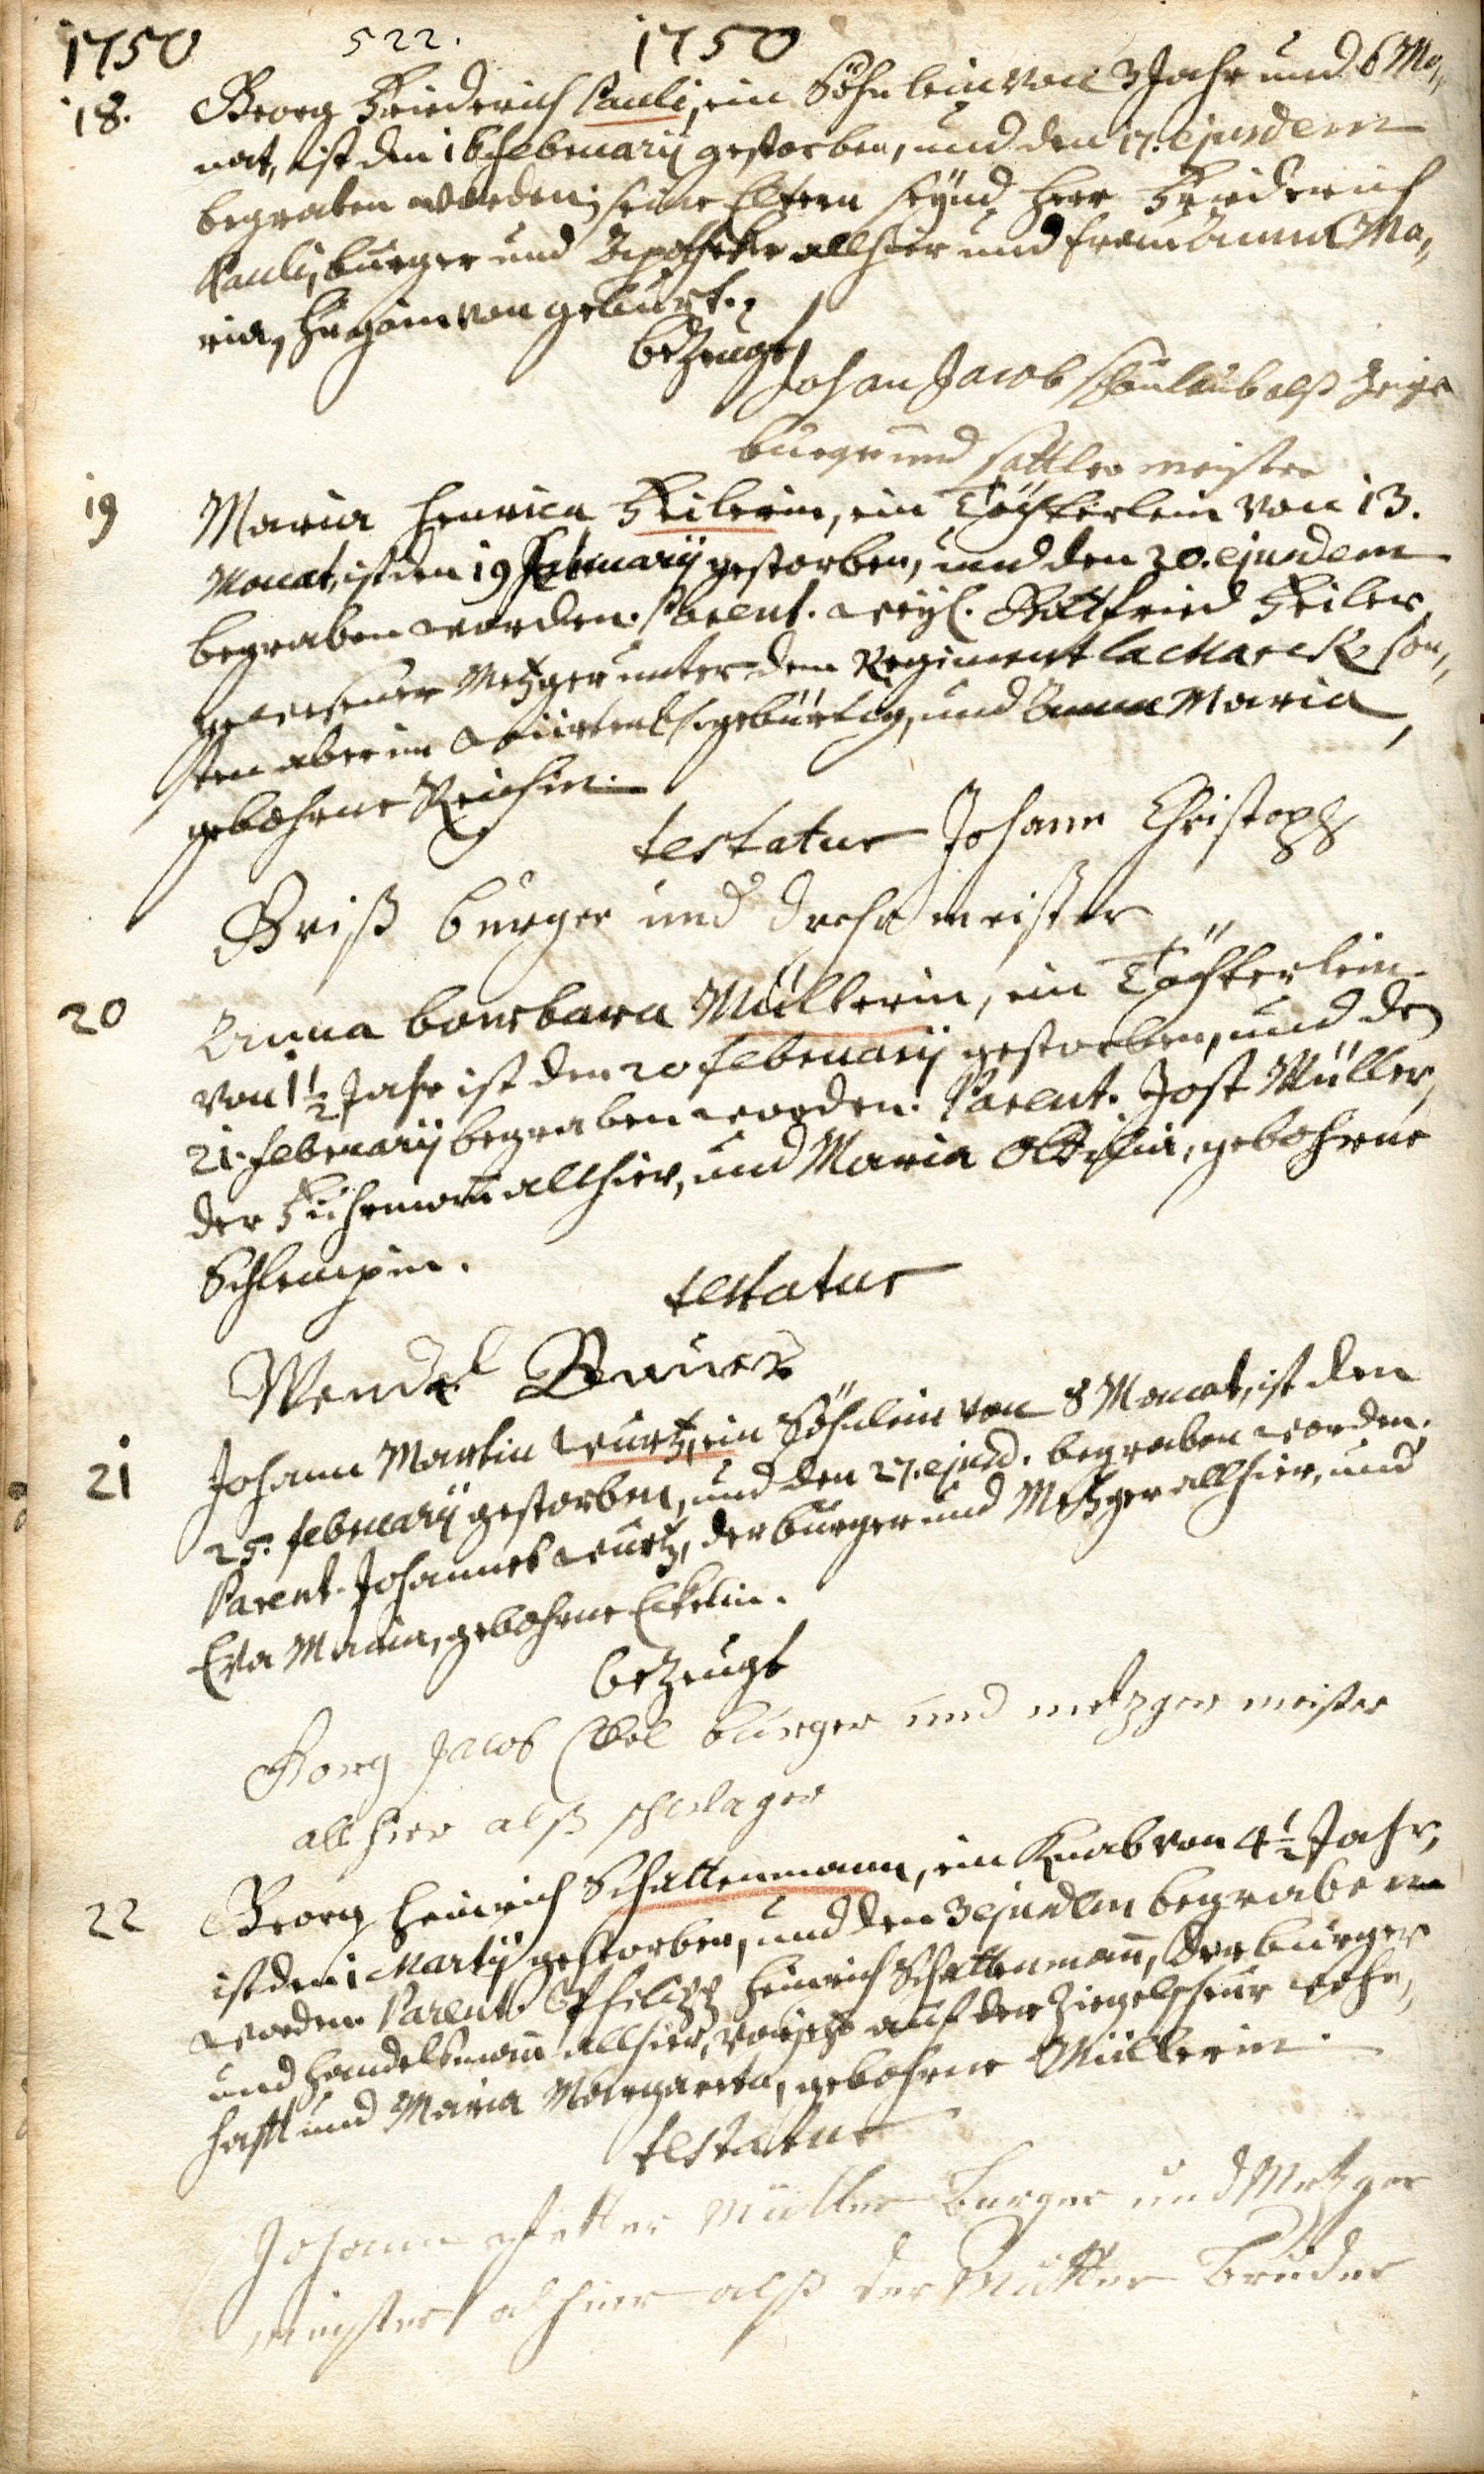 1750 522. 1750
18. Georg Friederich Pauli, ein Söhnlein von 3 Jahr und 6 Mo„
nat, ist den 16 Februarij gestorben, und den 17. ejusdem
begraben worden; seine Eltern seynd Herr Friederich
Pauli, burger und Apotheker allhier und Frau Anna Ma„
ria, von geburt.
bezeugt
Johan Jacob als Zeige
burger und sattler meister
19 Maria Henrica Feilerin, ein Töchterlein von 13.
Monat, ist den 19 Februarij gestorben, und den 20. ejusdem
begraben worden. Parent. weyl. Gottfried Feiler,
gewesener Metzger unter dem Regiment la Marck, son„
sten aber im Würtenb. gebürtig, und Anna Maria,
gebohrne Reichin.
testatur Johann Christoph
Griß burger und dreher meister
20 Anna barbara Müllerin, ein Töchterlein
von 1½ Jahr ist den 20 februarij gestorben, und den
21. februarij begraben worden. Parent. Jost Müller,
der Fuhrmann allhier, und Maria Ottilia, gebohrne
Schlempin.
testatur
Wendel Bauer
21 Johann Martin Wurtz, ein Söhnlein von 8 Monat, ist den
25. februarij gestorben, und den 27. ejusd. begraben worden.
Parent. Johannes Wurtz, der burger und Metzger allhier, und
Eva Maria, gebohrne Eckelin.
bezeugt
Georg Jacob Eckel burger und metzger meister
all hier alß schwager
22 Georg Heinrich Schattenmann, ein Knab von 4½ Jahr,
ist den 1 Martij gestorben, und den 3 ejusdem begraben
worden. Parent. Philipp Heinrich Schattenmann, der burger
und Handelsmann allhier, auf der Ziegelscheur wohn„
hafft und Maria Margaretha, gebohrne Müllerin.
testatur
Johann Petter Müller burger und Metzger
meister alhier alß der Mutter bruder